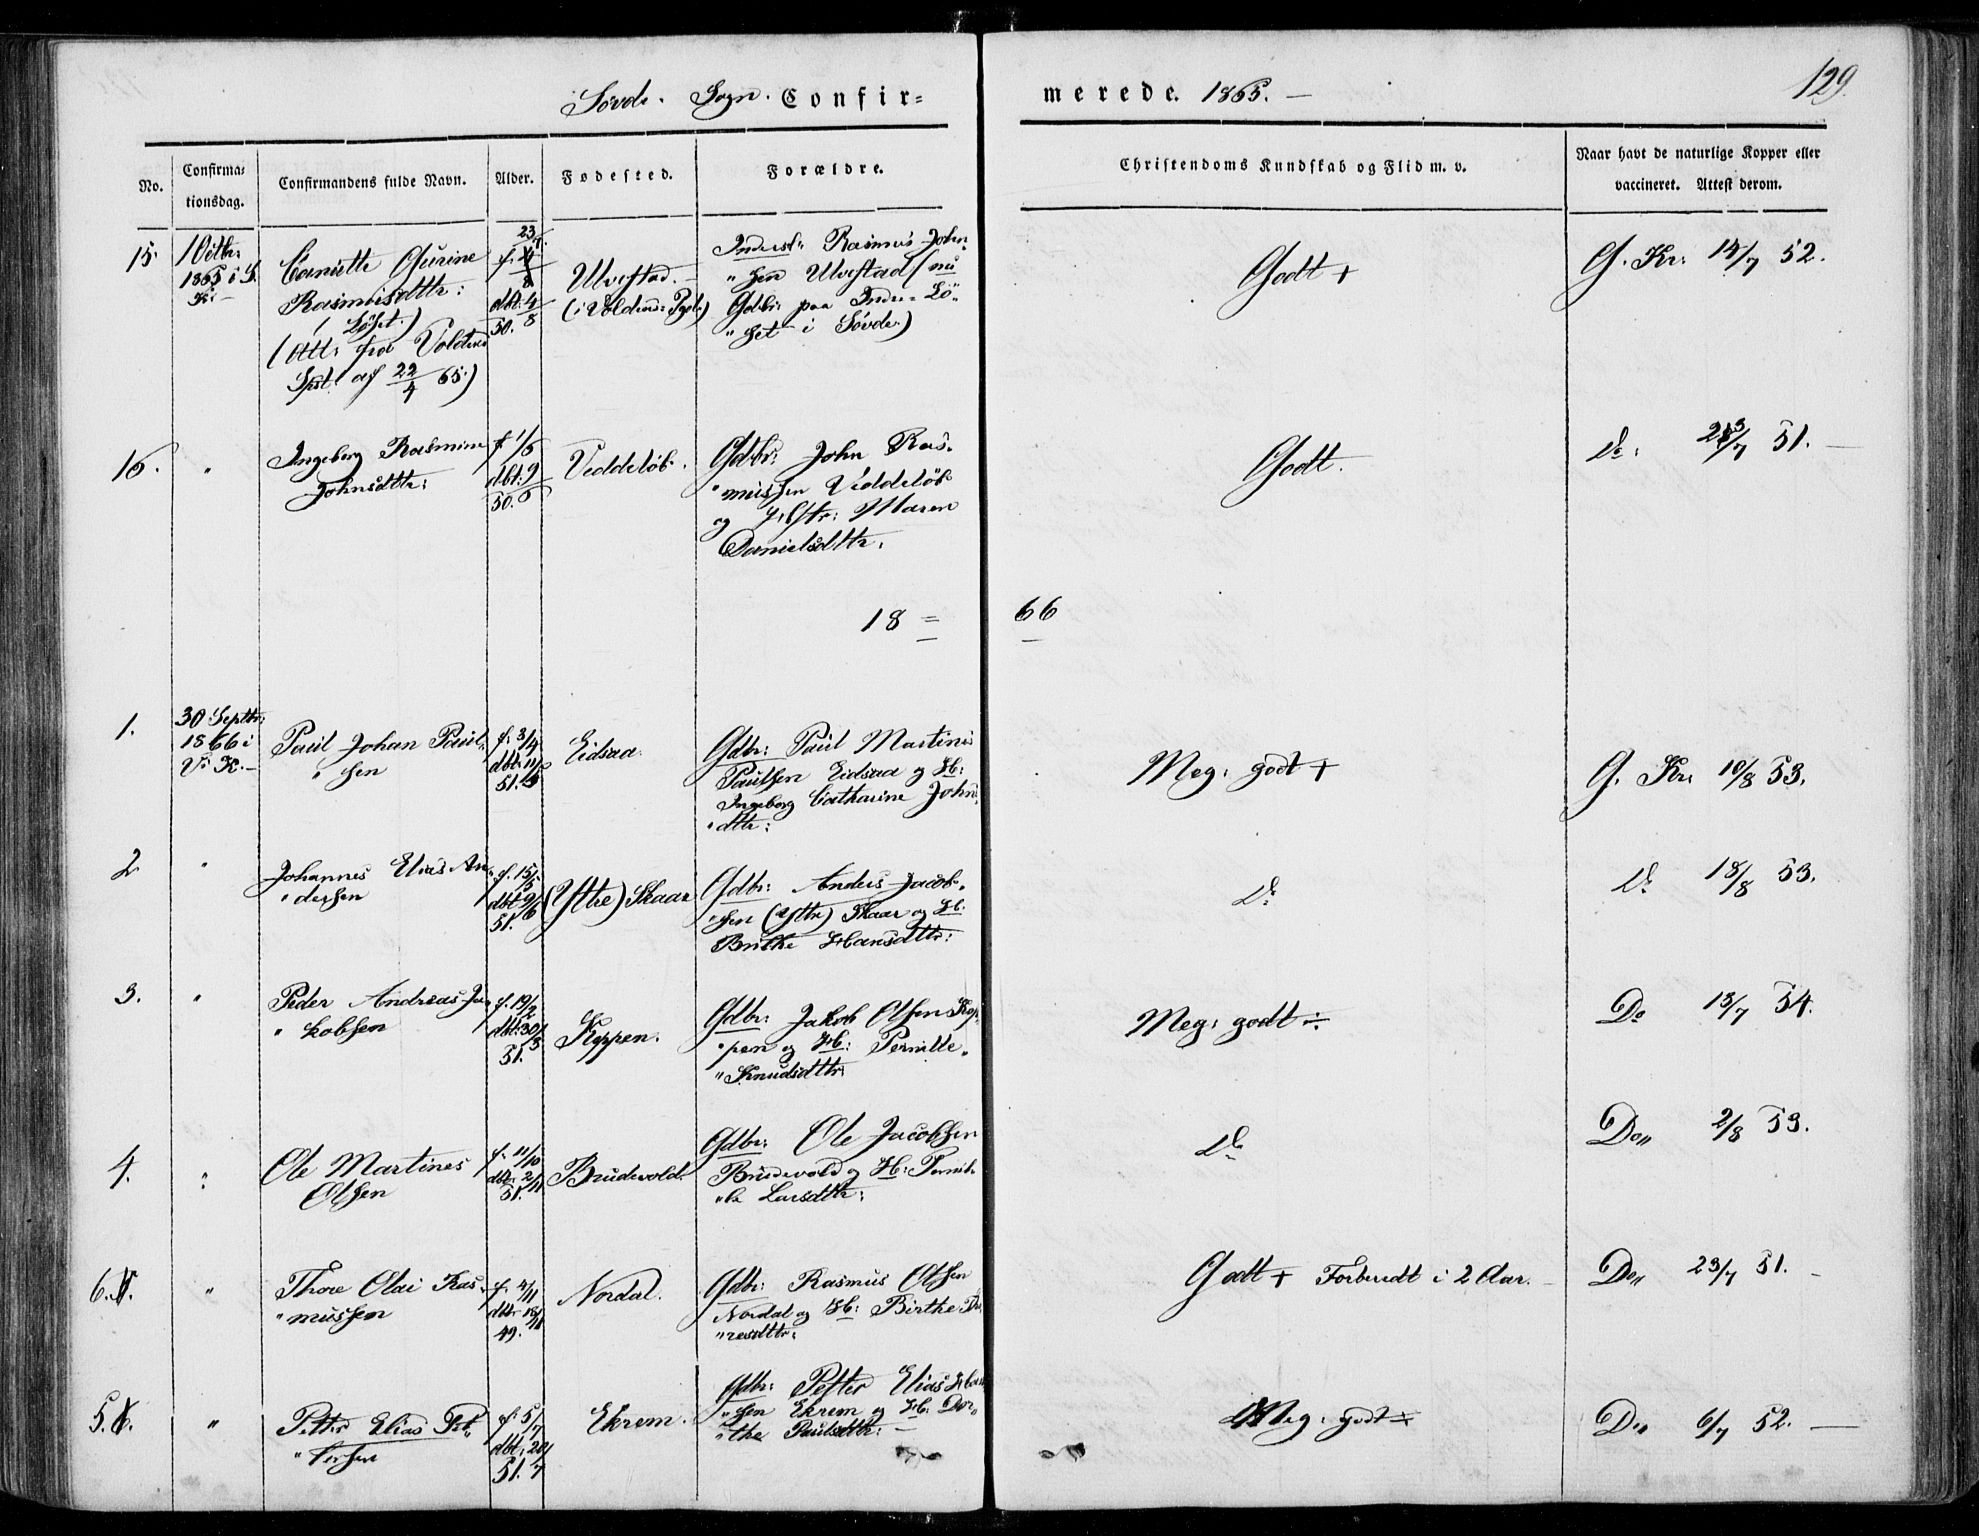 Søvde Sogn. Confir=
merede. 1865. —
129.
No.
Confirma=
tionsdag.
Confirmandens fulde Navn.
Alder.
Fødested.
Forældre.
Christendoms Kundskab og Flid m. v.
Naar havt de naturlige Kopper eller
vaccineret. Attest derom.
15.
1 Octbr:
1865 i S.
K: —
Gurine
Rasmusdttr:
(Löset.)
(Att: fra Voldens
Spst. af 22/4 65.)
23/7.
dbt: 4/8
50.
Ulvestad. —
(i Voldens Pgld.)
Inderst: Rasmus John„
„sen Ulvestad (nu
Gdbr: paa Indre Lö„
„set i Søvde.)
Godt +
G. Kr: 14/7 52.
16.
„
Ingeborg Rasmine
Johnsdttr:
f. 1/5
dbt: 9/5
50.
Veddeløb.
Gdbr: John Ras„
„mussen Veddeløb
og Hstr: Maren
Danielsdttr.
Godt.
Do: 23/7 51. —
18 =
66
1.
30 Septbr:
1866 i
V. K. —
Paul Johan Paul„
„sen
f. 3/4
dbt: 11/5
51.
Eidsaa.
Gdbr: Paul Martinus
Paulsen Eidsaa og H:
Ingeborg Catharine Johns„
„dttr:
Meg: godt +
G. Kr: 10/8 53.
2
„
Johannes Elias An„
„dersen
f. 15/5
dbt: 9/6
51.
(Ytre) Skaar
Gdbr: Anders Jacob„
„sen (Ytre) Skaar og H:
Brithe Hansdttr:
Do
18/8 53.
3.
„
Peder Andreas Ja„
„kobsen
f. 19/2
dbt: 30/3
51.
Koppen.
Gdbr: Jakob Olsen Kop„
„pen og H: Pernille„
„Knudsdttr:
Meg: godt ÷
Do 13/7 54.
4.
„
Ole Martines
Olsen
f. 11/10
dbt: 2/11
51.
Brudevold.
Gdbr: Ole Jacobsen
Brudevold og H: Pernil„
„le Larsdttr:
Do
Do„ 2/8 53.
6.
„
Thore Olai Ras„
„mussen
f. 4/11
dbt: 18/11
49.
Nordal.
Gdbr: Rasmus Olsen
Nordal og H: Birthe To„
„resdttr:
Godt + Forberedt i 2 Aar. —
Do„ 23/7 51. —
5.
„
Petter Elias Pet„
„tersen
f. 5/7
dbt: 20/7
51.
Ekrem.
Gdbr: Petter Elias Han„
„sen Ekrem og H: Dor„
„the Paulsdttr: —
Meg: godt ÷
Do„ 6/7 52. —